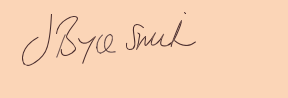 J Bryce Smith